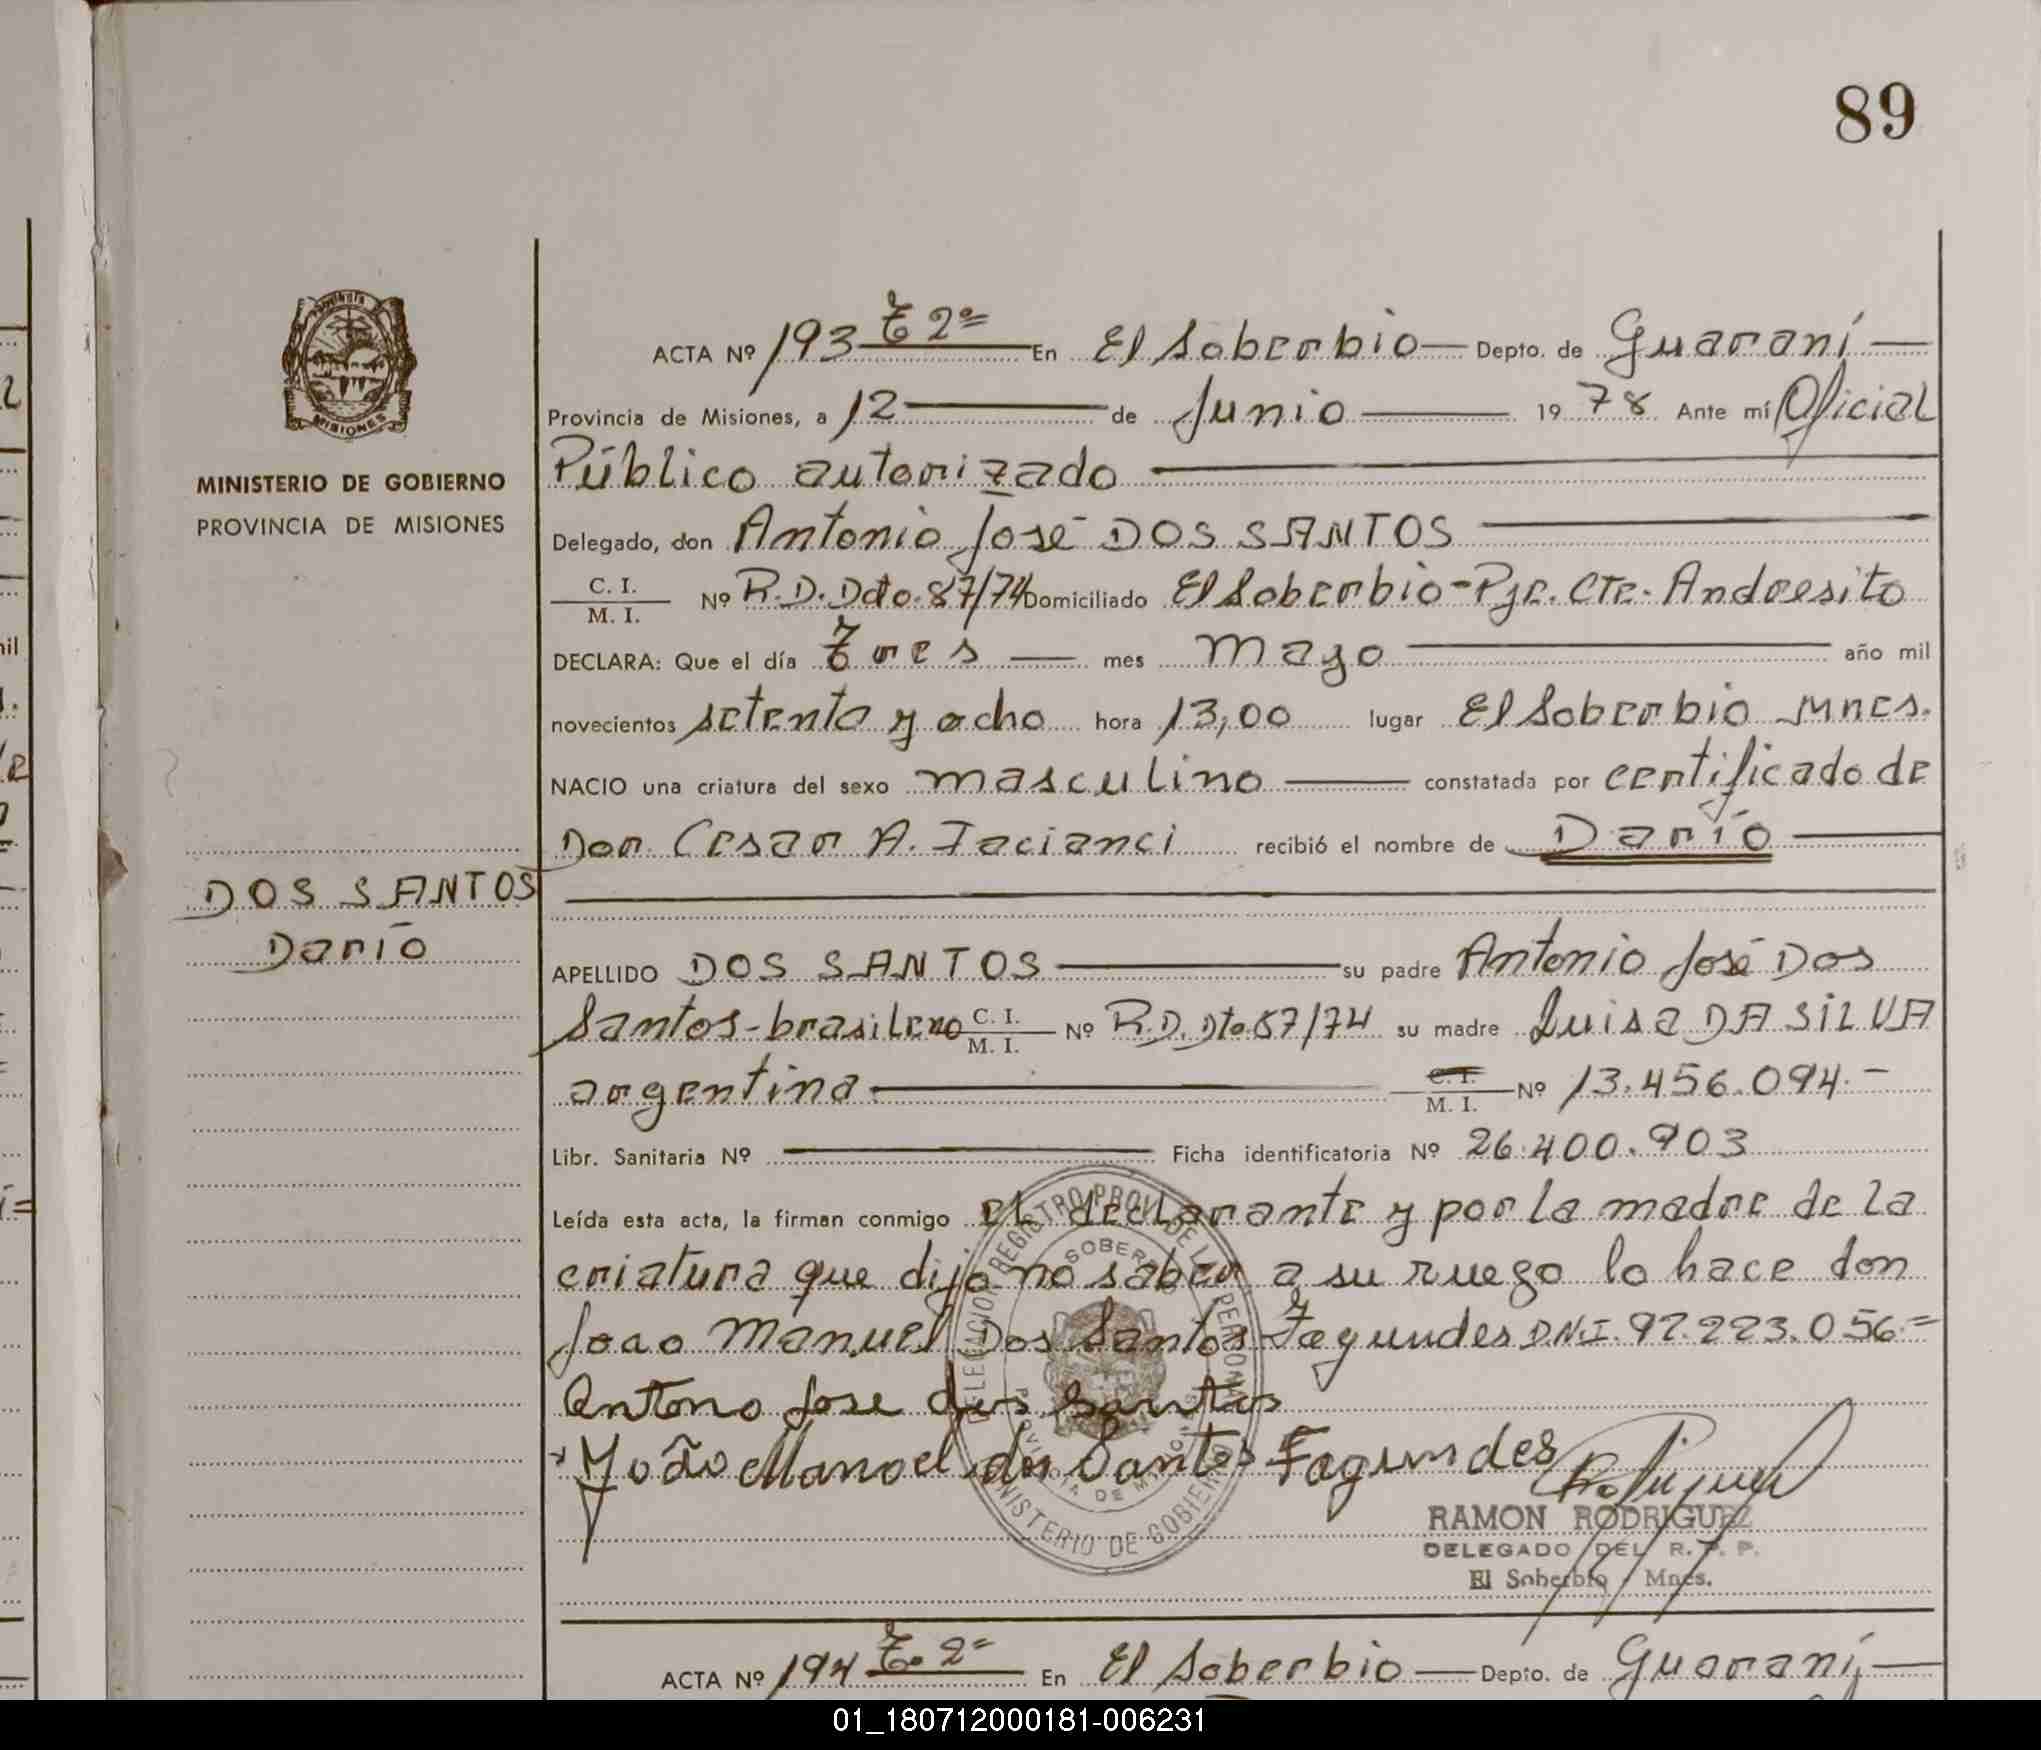 89
ACTA Nº 193 T 2º En El Soberbio Depto. de Guaraní
Provincia de Misiones, a 12 de Junio 1978 Ante mí Oficial
Público autorizado
Delegado, don Antonio José DOS SANTOS
C. I.
M. I. Nº R.D. Dto. 87/74 Domiciliado El Soberbio - Pje. Cte. Andresito
DECLARA: Que el día Tres mes Mayo año mil
novecientos setenta y ocho hora 13,00 lugar El Soberbio Mnes.
NACIO una criatura del sexo masculino constatada por certificado de
Dor. Cesar A. Iacianci recibió el nombre de Darío
APELLIDO DOS SANTOS su padre Antonio José Dos
Santos - brasilero C. I.
M. I. Nº R.D. Dto. 87/74 su madre Luisa DA SILVA
argentina C. I.
M. I. Nº 13.456.094.-
Libr. Sanitaria Nº Ficha identificatoria Nº 26.400.903
Leída esta acta, la firman conmigo el declarante y por la madre de la
criatura que dijo no saber a su ruego lo hace don
Joao Manuel Dos Santos Fagundes DNI. 92.223.056=
Antono Jose dos Santos
João Manoel dos Santos Fagundes
RAMON RODRIGUEZ
DELEGADO DEL R. P. P.
El Soberbio - Mnes.
MINISTERIO DE GOBIERNO
PROVINCIA DE MISIONES
MISIONES
DOS SANTOS
Darío
DELEGACION REGISTRO PROV. DE LAS PERSONAS
EL SOBERBIO
PROVINCIA DE MISIONES
MINISTERIO DE GOBIERNO
ACTA Nº 194 T. 2º En El Soberbio Depto. de Guaraní
01_180712000181-006231